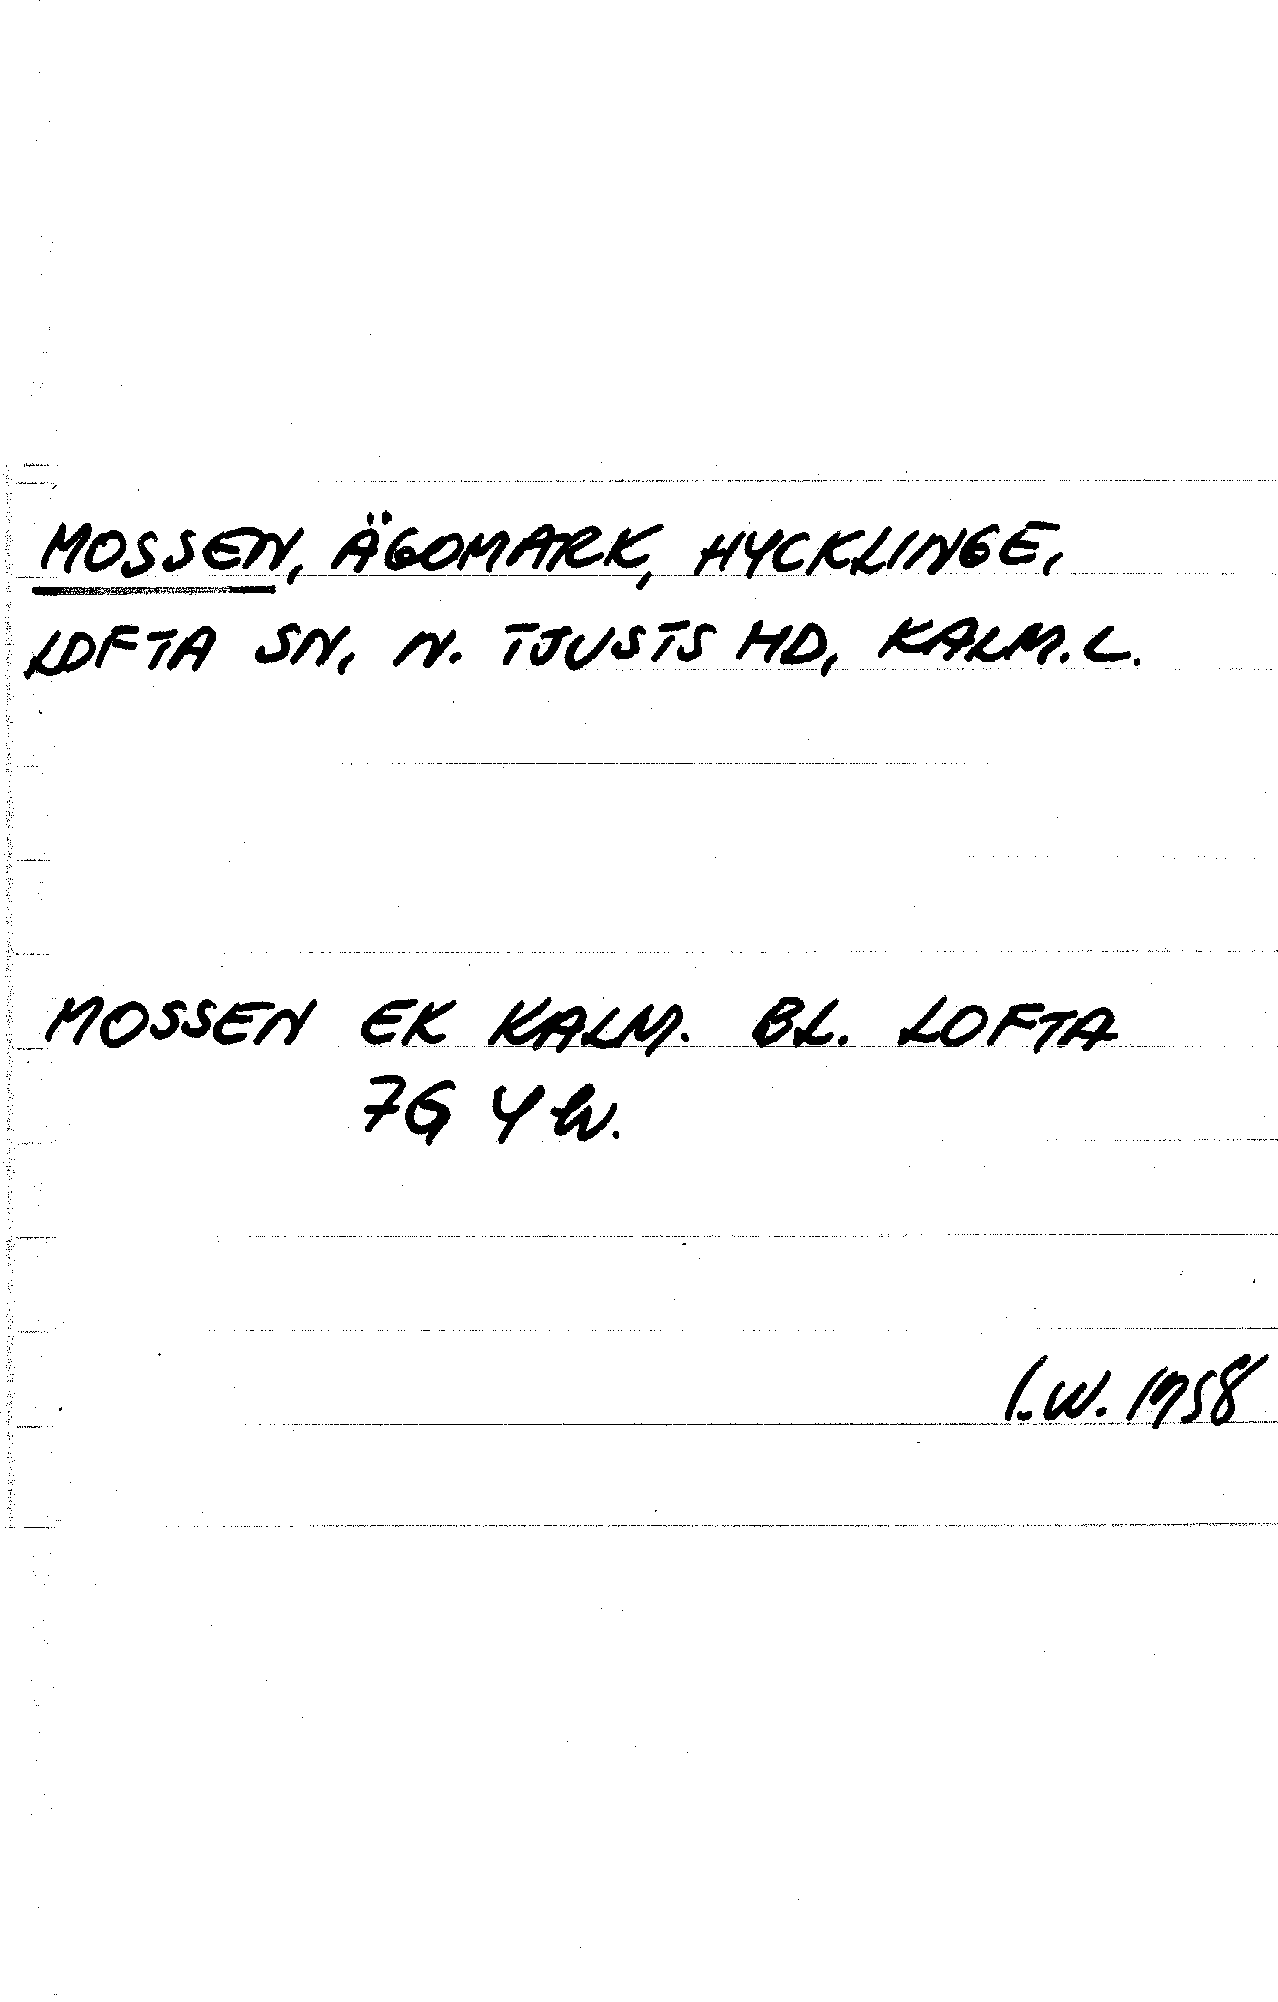 MOSSEN, ÄGOMARK, HYCKLINGE,
LOFTA SN, N. TJUSTS HD, KALM. L.
MOSSEN EK KALM. BL. LOFTA
7G
I.W. 1958